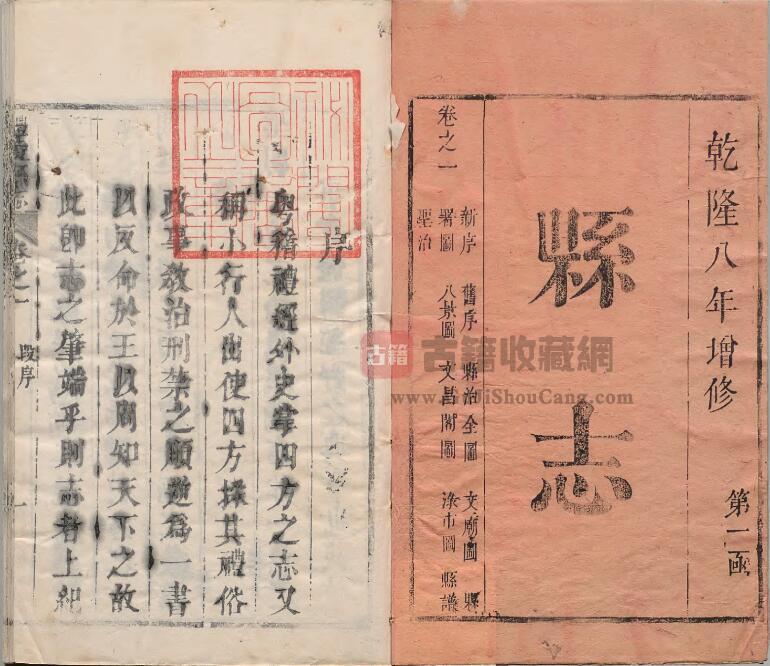 乾隆八年增修
第一函
縣志
卷之一
新序 舊序 縣治全圖 文廟圖 縣
署圖 八景圖 文昌閣圖 淥市圖 縣譜
聖治
序
粵稽禮經外史掌四方之志又
稱小行人出使四方採其禮俗
政事教治刑禁之順逆為一書
以反命於王以周知天下之故
此卽志之肇端乎則志者上紀
卷之一
段序
一
古籍
古籍收藏網
www.GuJiShouCang.com